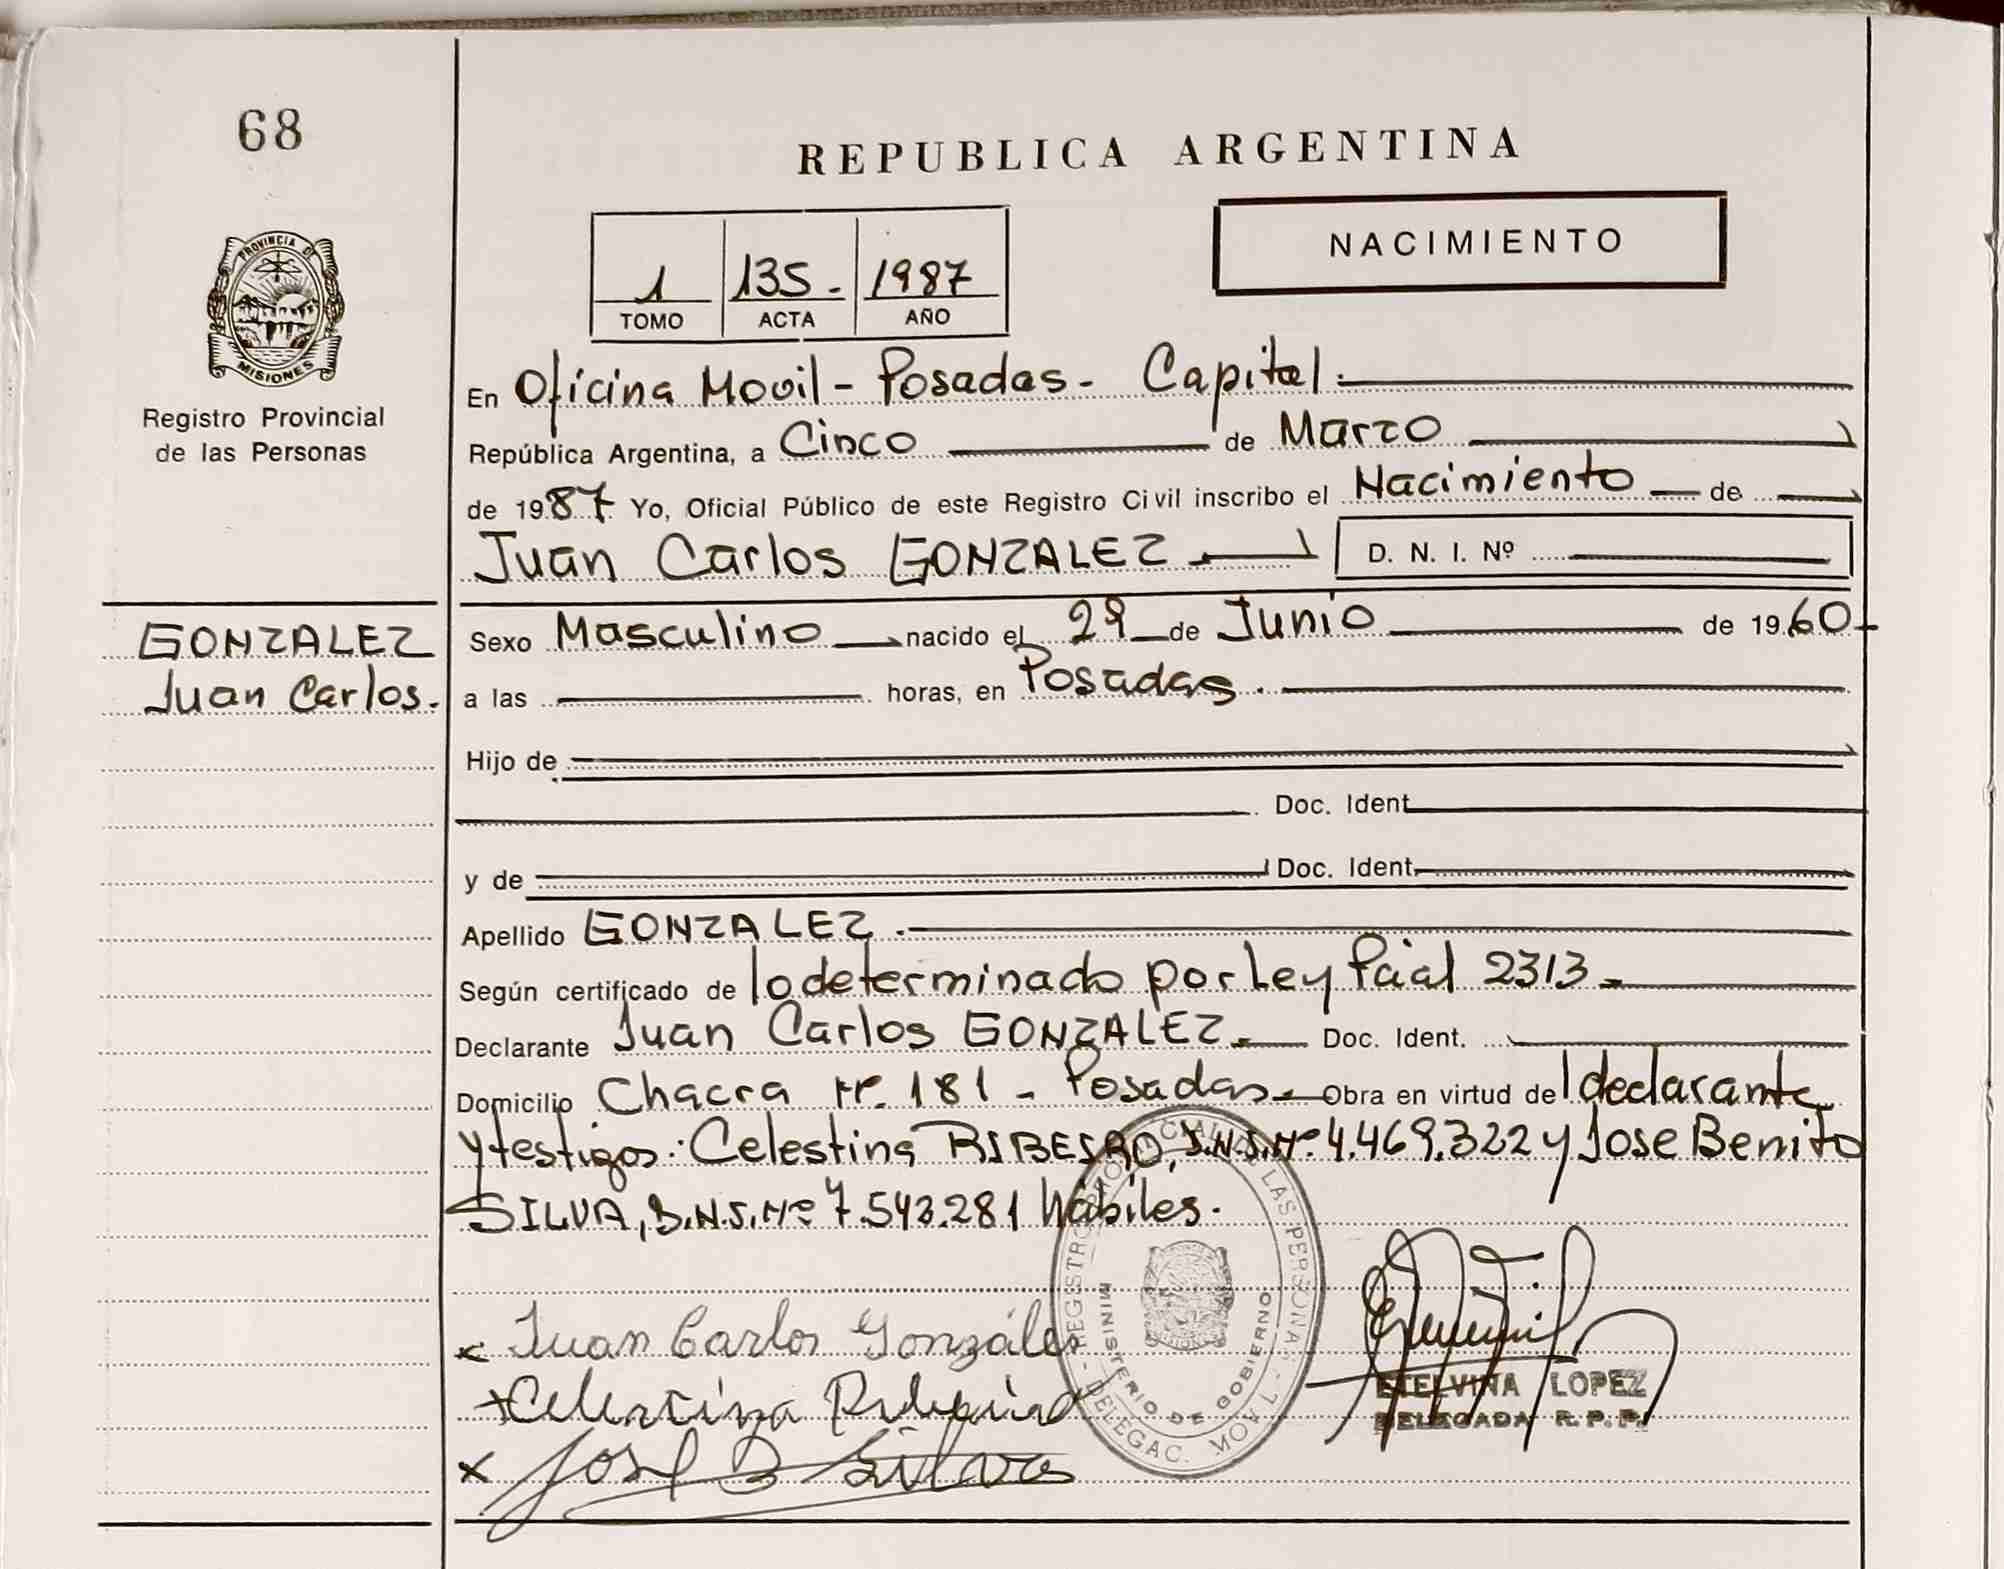 68
REPUBLICA ARGENTINA
NACIMIENTO
1 135.- 1987
TOMO ACTA AÑO
PROVINCIA DE
MISIONES
Registro Provincial
de las Personas
En Oficina Movil - Posadas - Capital.-
República Argentina, a Cinco de Marzo
de 1987 Yo, Oficial Público de este Registro Civil inscribo el Nacimiento de
Juan Carlos GONZALEZ.- D. N. I. Nº
GONZALEZ
Juan Carlos.
Sexo Masculino nacido el 29 de Junio de 1960
a las horas, en Posadas.
Hijo de
Doc. Ident.
y de Doc. Ident.
Apellido GONZALEZ.-
Según certificado de lo determinado por Ley Pcial 2313.-
Declarante Juan Carlos GONZALEZ.- Doc. Ident.
Domicilio Chacra Nº. 181 - Posadas.- Obra en virtud de l declarante
y testigos: Celestina RIBEIRO, D.N.I.Nº 4.469.322 y Jose Benito
SILVA, D.N.I.Nº 7.543.281 Hábiles.
x Juan Carlos González
x Celestina
x José B Silva
REGISTRO PROVINCIAL DE LAS PERSONAS - DELEGAC. MOVIL -
MINISTERIO DE GOBIERNO
ETELVINA LOPEZ
DELEGADA R. P. P.